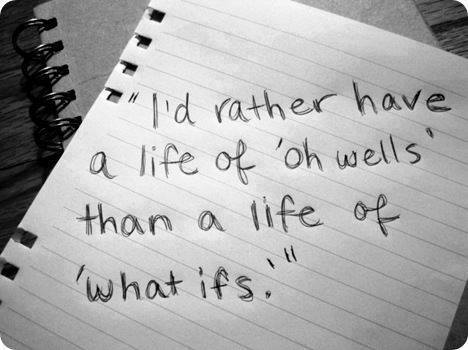 "I'd rather have
a life of 'oh wells'
than a life of
'what ifs.'"